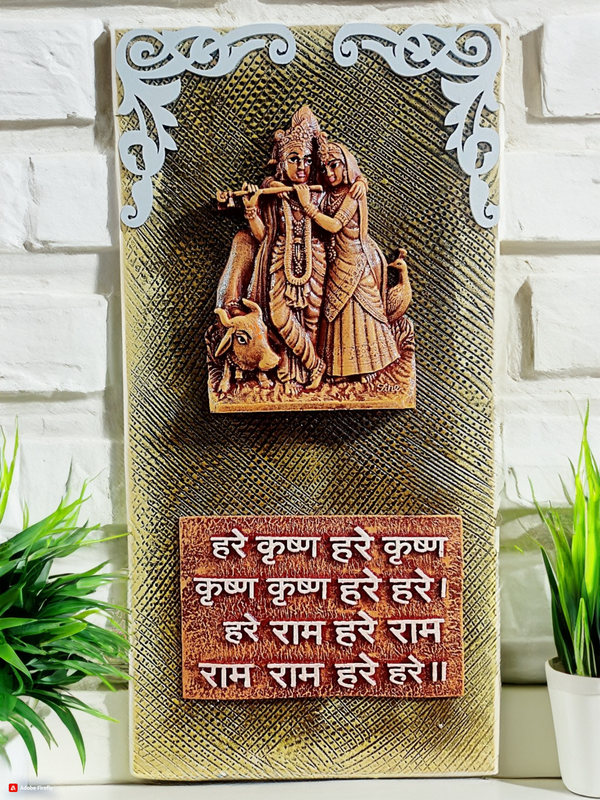 हरे कृष्ण हरे कृष्ण
कृष्ण कृष्ण हरे हरे।
हरे राम हरे राम
राम राम हरे हरे॥
Adobe Firefly